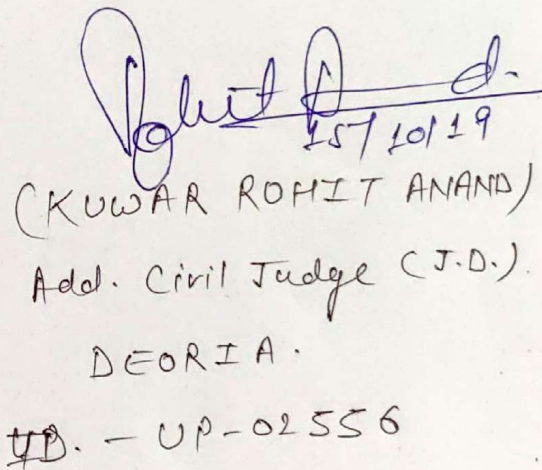 Rohit Anand.
15/10/19
(KUWAR ROHIT ANAND)
Add. Civil Judge (J.D.)
DEORIA.
ID. - UP-02556